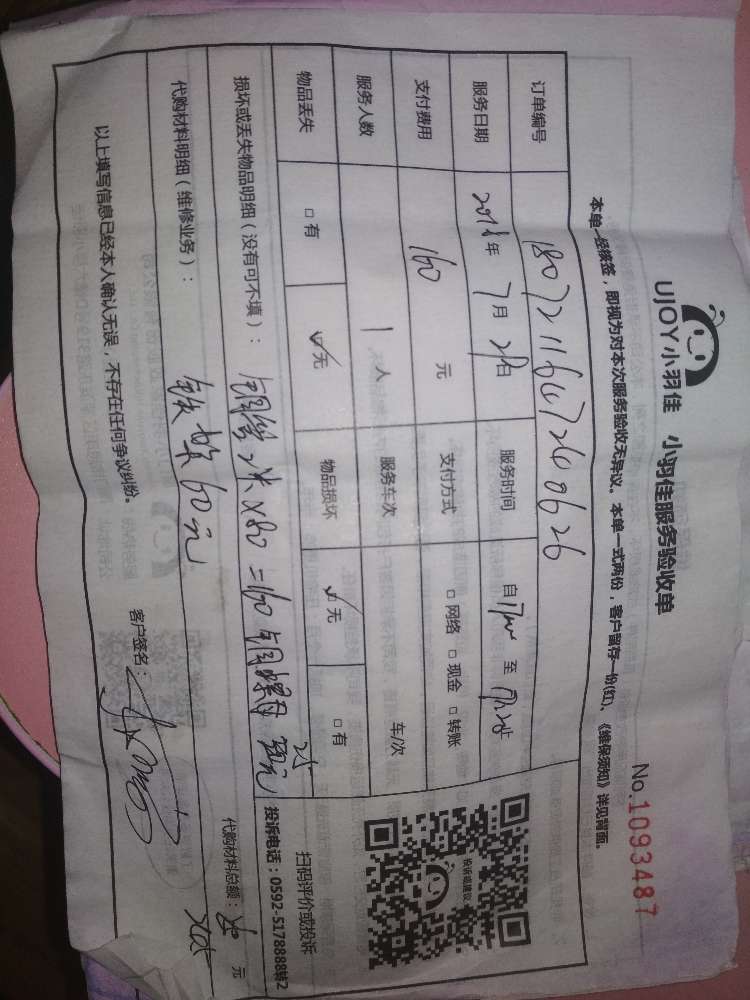 UJOY小羽佳 小羽佳服务验收单
No.1093487
本单一经续签，即视为对本次服务验收无异议。本单一式两份，客户留存一份(红)、《维保须知》详见背面。
订单编号 18072116472600626
服务日期 2018年 7月 21日 服务时间 自 至
支付费用 160 元 支付方式 □网络 □现金 □转账
服务人数 1 人 服务车次 车/次
物品丢失 □有 ☑无 物品损坏 ☑无 □有
投诉或建议
扫码评价或投诉
投诉电话：0592-5178888转2
损坏或丢失物品明细（没有可不填）： 铜管2米X80=160 铜螺母 25元
代购材料明细（维修业务）： 铁架60元
代购材料总额： 元
245
以上填写信息已经本人确认无误，不存在任何争议纠纷。
客户签名：